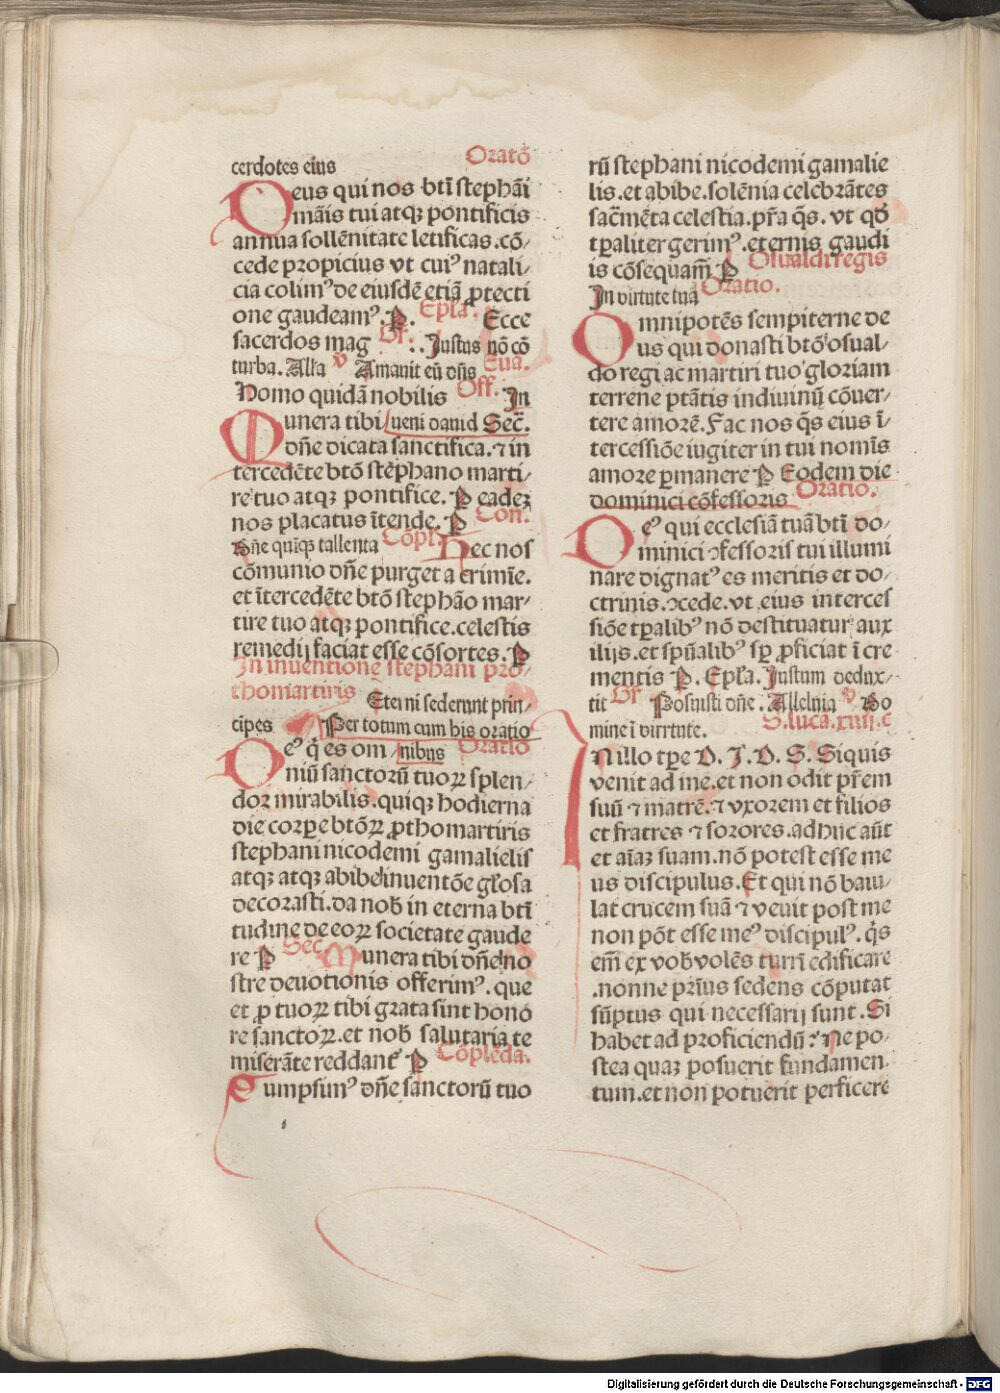 cerdotes eius Oratō
Deus qui nos btī stephāi
mr̄is tui atqꝫ pontificis
annua sollēnitate letificas.cō/
cede propicius vt cuiꝰ natali/
cia colimꝰ de eiusdē etiā ꝓtecti
one gaudeamꝰ.P. Epl̄a. Ecce
sacerdos mag Gr̄. Justus nō cō
turba. All'a v̊ Amauit eū dn̄s Eua.
Homo quidā nobilis Off. In
Munera tibi ueni dauid Sec̄.
dn̄e dicata sanctifica.⁊ in
tercedēte btō stephano marti/
re tuo atqꝫ pontifice. P eadeꝫ
nos placatus ītende. P Con.
Dn̄e quīqꝫ tallenta Cōpl̄. Hec nos
cōmunio dn̄e purget a crimīe.
et ītercedēte btō stephāo mar/
tire tuo atqꝫ pontifice.celestis
remedij faciat esse cōsortes. P
In inuentione stephani pro/
thomartiris Etenī sederunt prin/
cipes Per totum cum his oratio
Deꝰ q̄ es om nibus Oratio
niū sanctorū tuoꝝ splen/
dor mirabilis.quiqꝫ hodierna
die corꝑe btōꝝ ꝓthomartiris
stephani nicodemi gamalielis
atqꝫ atqꝫ abibe inuentōe gl'osa
decorasti.da nob̄ in eterna btī
tudine de eoꝝ societate gaude
re P Sec̄ Munera tibi dn̄e no
stre deuotionis offerimꝰ.que
et ꝓ tuoꝝ tibi grata sint hono
re sanctoꝝ.et nob̄ salutaria te
miserāte reddant' P Cōplēda.
Sumpsimꝰ dn̄e sanctorū tuo
rū stephani nicodemi gamalie
lis.et abibe.solēnia celebrātes
sac̄mēta celestia.pr̄a q̄s.vt qd̄
tꝑaliter gerimꝰ.eternis gaudi
is cōsequam̄ P Osualdi regis
In virtute tua Oratio.
Omnipotēs sempiterne de
us qui donasti btō osual/
do regi ac martiri tuo gloriam
terrene ptātis in diuinū cōuer/
tere amorē.Fac nos q̄s eius ī/
tercessiōe iugiter in tui nomīs
amore ꝑmanere P Eodem die
dominici cōfessoris Oratio.
Deꝰ qui ecclesiā tuā btī do/
minici ꝯfessoris tui illumi
nare dignatꝰ es meritis et do/
ctrinis.ꝯcede.vt eius interces
siōe tꝑalibꝰ nō destituatur aux
ilijs.et spūalibꝰ sꝑ ꝓficiat īcre
mentis P. Epl̄a. Justum dedux/
tit Gr̄ Posuisti dn̄e. Alleluia v̊ Do
mine ī virrtute. S.luca.xiiij.c
In illo tꝑe D. J. D. S. Si quis
venit ad me.et non odit pr̄em
suū ⁊ matrē.⁊ vxorem et filios
et fratres ⁊ sorores.adhuc aūt
et aīaꝫ suam.nō potest esse me
us discipulus.Et qui nō baiu/
lat crucem suā ⁊ venit post me
non pōt esse meꝰ discipulꝰ.q̄s
em̄ ex vob̄ volēs turrī edificare
.nonne prīus sedens cōputat
sūptus qui necessarij sunt.Si
habet ad proficiendū: ne po/
stea quaꝫ posuerit fundamen/
tum.et non potuerit perficere
Digitalisierung gefördert durch die Deutsche Forschungsgemeinschaft - DFG